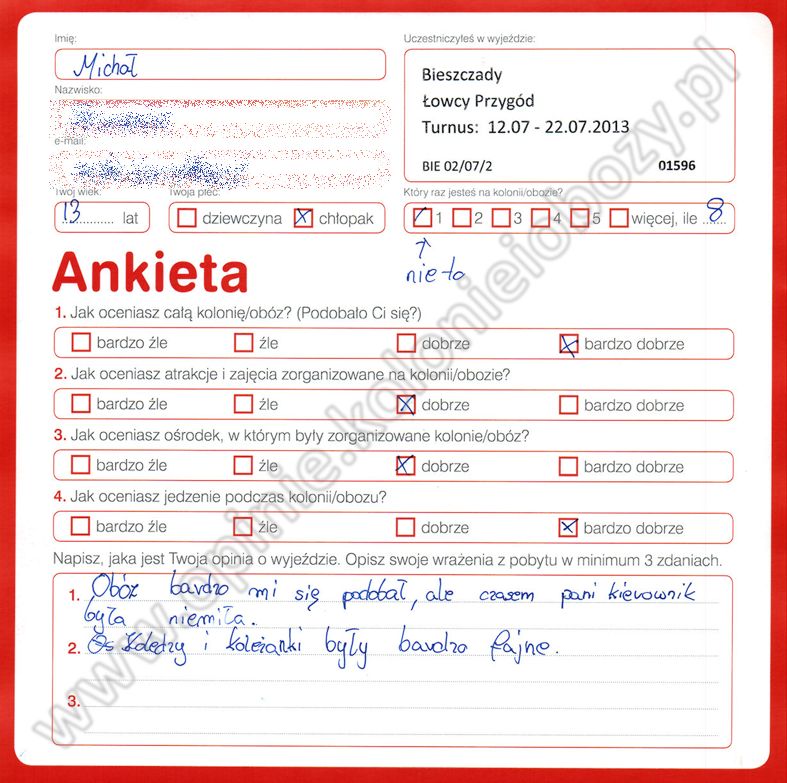 Imię:
Michał
Nazwisko:
e-mail:
Twój wiek:
13 lat
Twoja płeć:
dziewczyna chłopak
Uczestniczyłeś w wyjeździe:
Bieszczady
Łowcy Przygód
Turnus: 12.07 - 22.07.2013
BIE 02/07/2 01596
Który raz jesteś na kolonii/obozie?
1 2 3 4 5 więcej, ile 8
nie to
Ankieta
1. Jak oceniasz całą kolonię/obóz? (Podobało Ci się?)
bardzo źle źle dobrze bardzo dobrze
2. Jak oceniasz atrakcje i zajęcia zorganizowane na kolonii/obozie?
bardzo źle źle dobrze bardzo dobrze
3. Jak oceniasz ośrodek, w którym były zorganizowane kolonie/obóz?
bardzo źle źle dobrze bardzo dobrze
4. Jak oceniasz jedzenie podczas kolonii/obozu?
bardzo źle źle dobrze bardzo dobrze
Napisz, jaka jest Twoja opinia o wyjeździe. Opisz swoje wrażenia z pobytu w minimum 3 zdaniach.
1. Obóz bardzo mi się podobał, ale czasem pani kierownik
była niemiła.
2. Koledzy i koleżanki były bardzo fajne.
3.
www.opinie.kolonieiobozy.pl